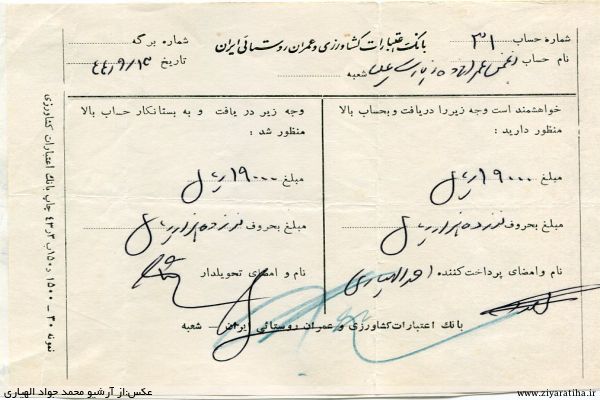 شمارهٔ حساب ۳۱
بانک اعتبارات کشاورزی و عمران روستائی ایران
شماره برگه
نام حساب انجمن عمران ده زیارت
شعبه
تاریخ ۴۴/۹/۱۳
خواهشمند است وجه زیر را دریافت و بحساب بالا
منظور دارید :
مبلغ ۱۹۰۰۰ ریال
مبلغ بحروف نوزده هزار ریال
نام و امضای پرداخت‌کننده
وجه زیر در یافت و به بستانکار حساب بالا
منظور شد :
مبلغ ۱۹۰۰۰ ریال
مبلغ بحروف نوزده هزار ریال
نام و امضای تحویلدار
بانک اعتبارات کشاورزی و عمران روستائی ایران – شعبه
نمونه ۳۰ – ۱۵۰۰ چاپ بانک اعتبارات کشاورزی
عکس:از آرشیو محمد جواد الهیاری
www.ziyaratiha.ir